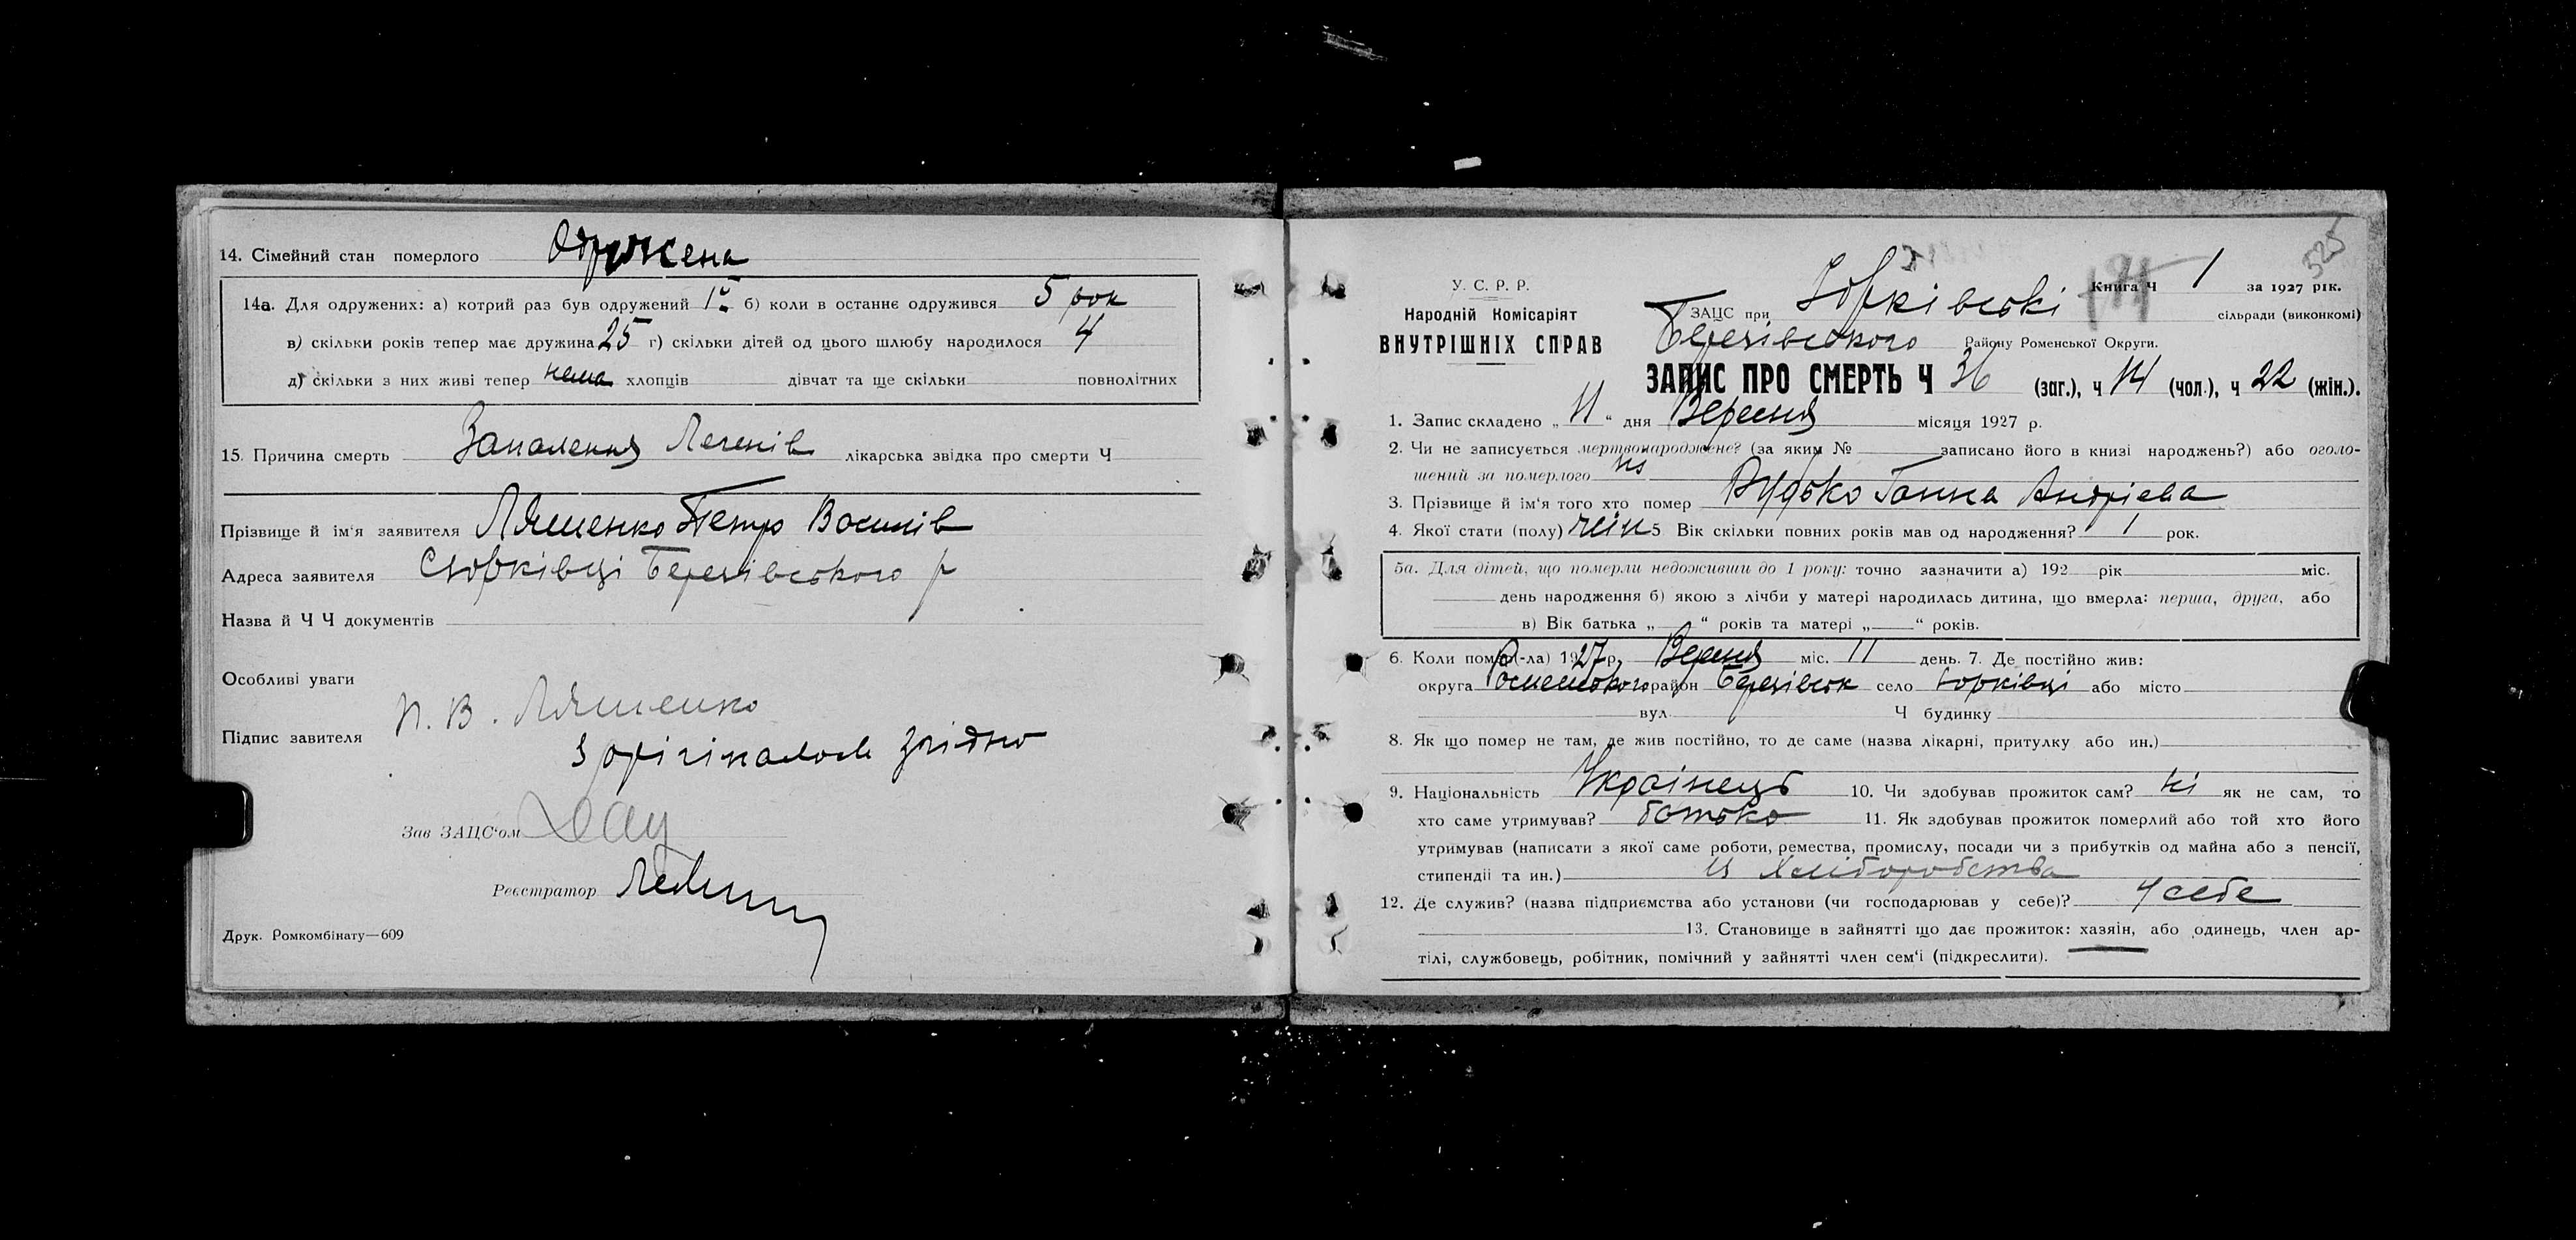 14. Сімейний стан померлого Одружена
14а. Для одружених: а) котрий раз був одружений 1й б) коли в останнє одружився 5 рок
в) скільки років тепер має дружина 25 г) скільки дітей од цього шлюбу народилося 4
д) скільки з них живі тепер нема хлопців дівчат та ще скільки повнолітних
15. Причина смерть Запалення Легенів лікарська звідка про смерти Ч
Прізвище й ім'я заявителя Ляшенко Петро Васимів
Адреса заявителя Березівського р
Назва й Ч Ч документів
Особливі уваги
П. В. Ляшенко
Підпис завителя
З орігіналом згідно
Зав ЗАЦС'ом
Реєстратор
Друк. Ромкомбінату—609
525
У. С. Р. Р.
Народній Комісаріят
ВНУТРІШНІХ СПРАВ
Книга Ч 1 за 1927 рік.
ЗАЦС при Юрківські сільради (виконкомі)
Березівського Району Роменської Округи.
ЗАПИС ПРО СМЕРТЬ Ч 36 (заг.), ч 14 (чол.), ч 22 (жін.).
1. Запис складено „ 11 “ дня Вересня місяця 1927 р.
2. Чи не записується мертвонароджене? (за яким № записано його в книзі народжень?) або оголо-
шений за померлого ні
3. Прізвище й ім'я того хто помер Рудько Ганна Андрієва
4. Якої стати (полу) жін 5 Вік скільки повних років мав од народження? 1 рок.
5а. Для дітей, що померли недоживши до 1 року: точно зазначити а) 192 рік міс.
день народження б) якою з лічби у матері народилась дитина, що вмерла: перша, друга, або
в) Вік батька „ “ років та матері „ “ років.
6. Коли помер(-ла) 1927 р. Вересня міс. 11 день. 7. Де постійно жив:
округа Роменського район Березівськ село Юрківці або місто
вул. Ч будинку
8. Як що помер не там, де жив постійно, то де саме (назва лікарні, притулку або ин.)
9. Національність Українець 10. Чи здобував прожиток сам? ні як не сам, то
хто саме утримував? батько 11. Як здобував прожиток померлий або той хто його
утримував (написати з якої саме роботи, ремества, промислу, посади чи з прибутків од майна або з пенсії,
стипендії та ин.) Із Хліборобства
12. Де служив? (назва підприємства або установи (чи господарював у себе)? у себе
13. Становище в зайнятті що дає прожиток: хазяін, або одинець, член ар-
тілі, службовець, робітник, помічний у зайнятті член сем'ї (підкреслити).